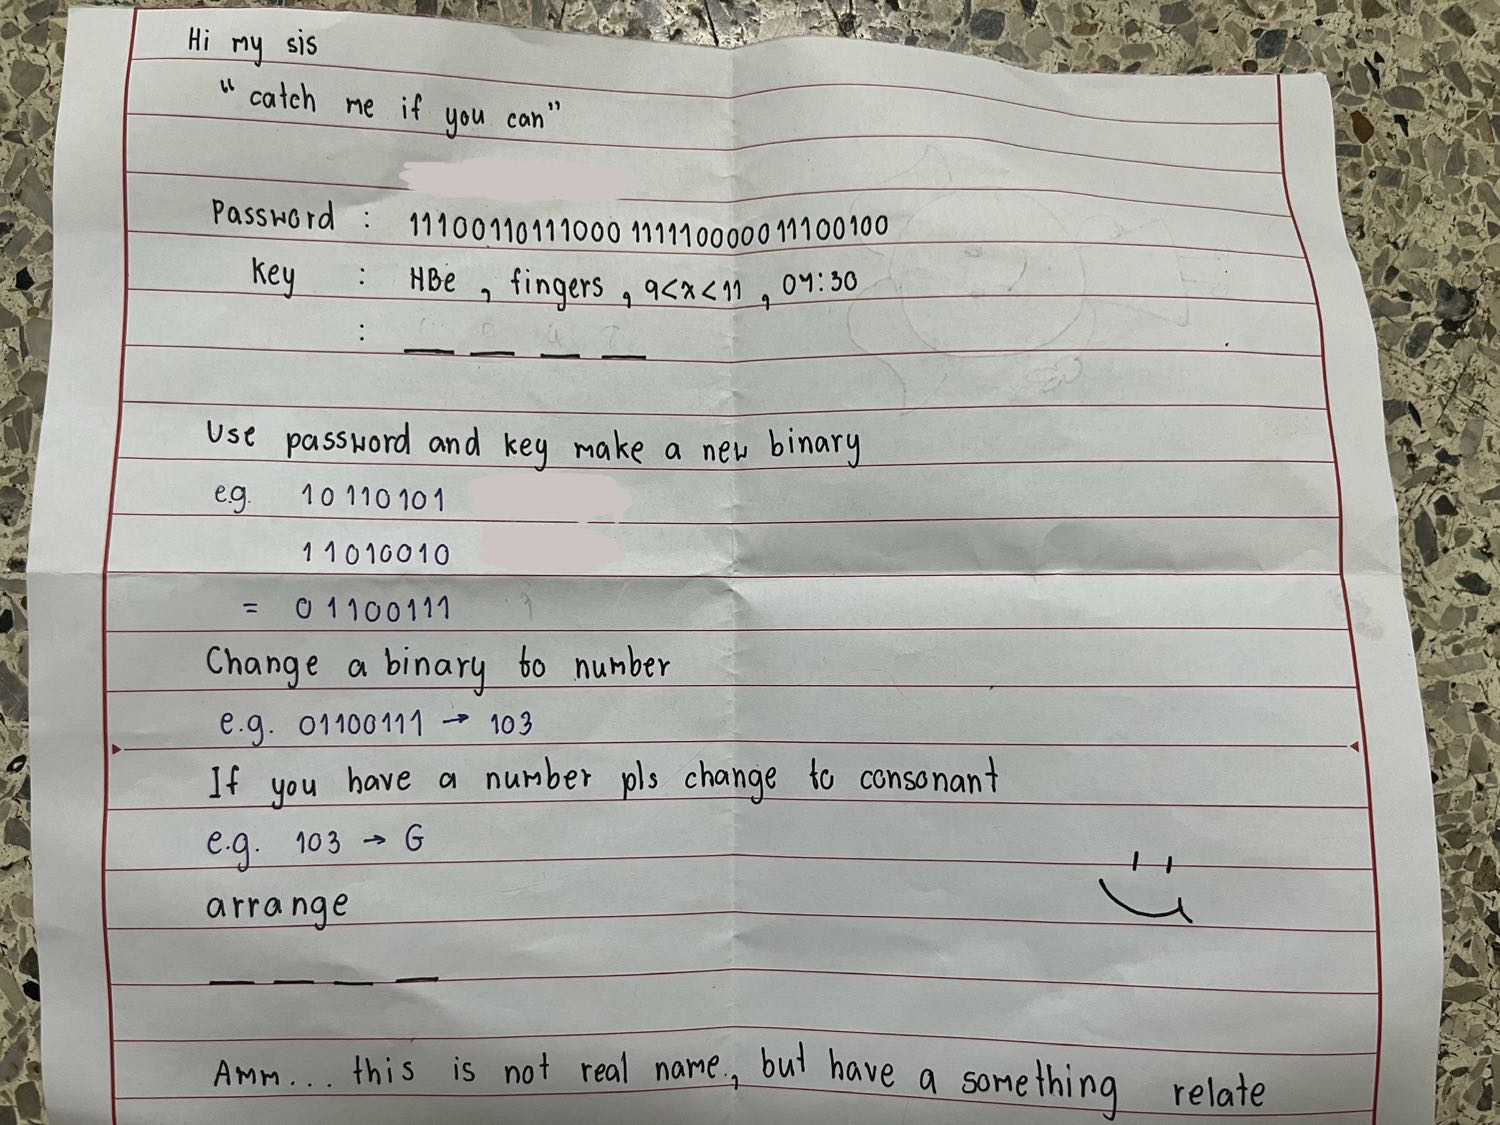 Hi my sis
"catch me if you can"
Password : 11100110111000 1111100000 11100100
Key : HBe , fingers , 9<x<11 , 04:30
: __ __ __ __
Use password and key make a new binary
e.g. 10110101
11010010
= 01100111
Change a binary to number
e.g. 01100111 → 103
If you have a number pls change to consonant
e.g. 103 → G
arrange
__ __ __ __
Amm... this is not real name., but have a something relate